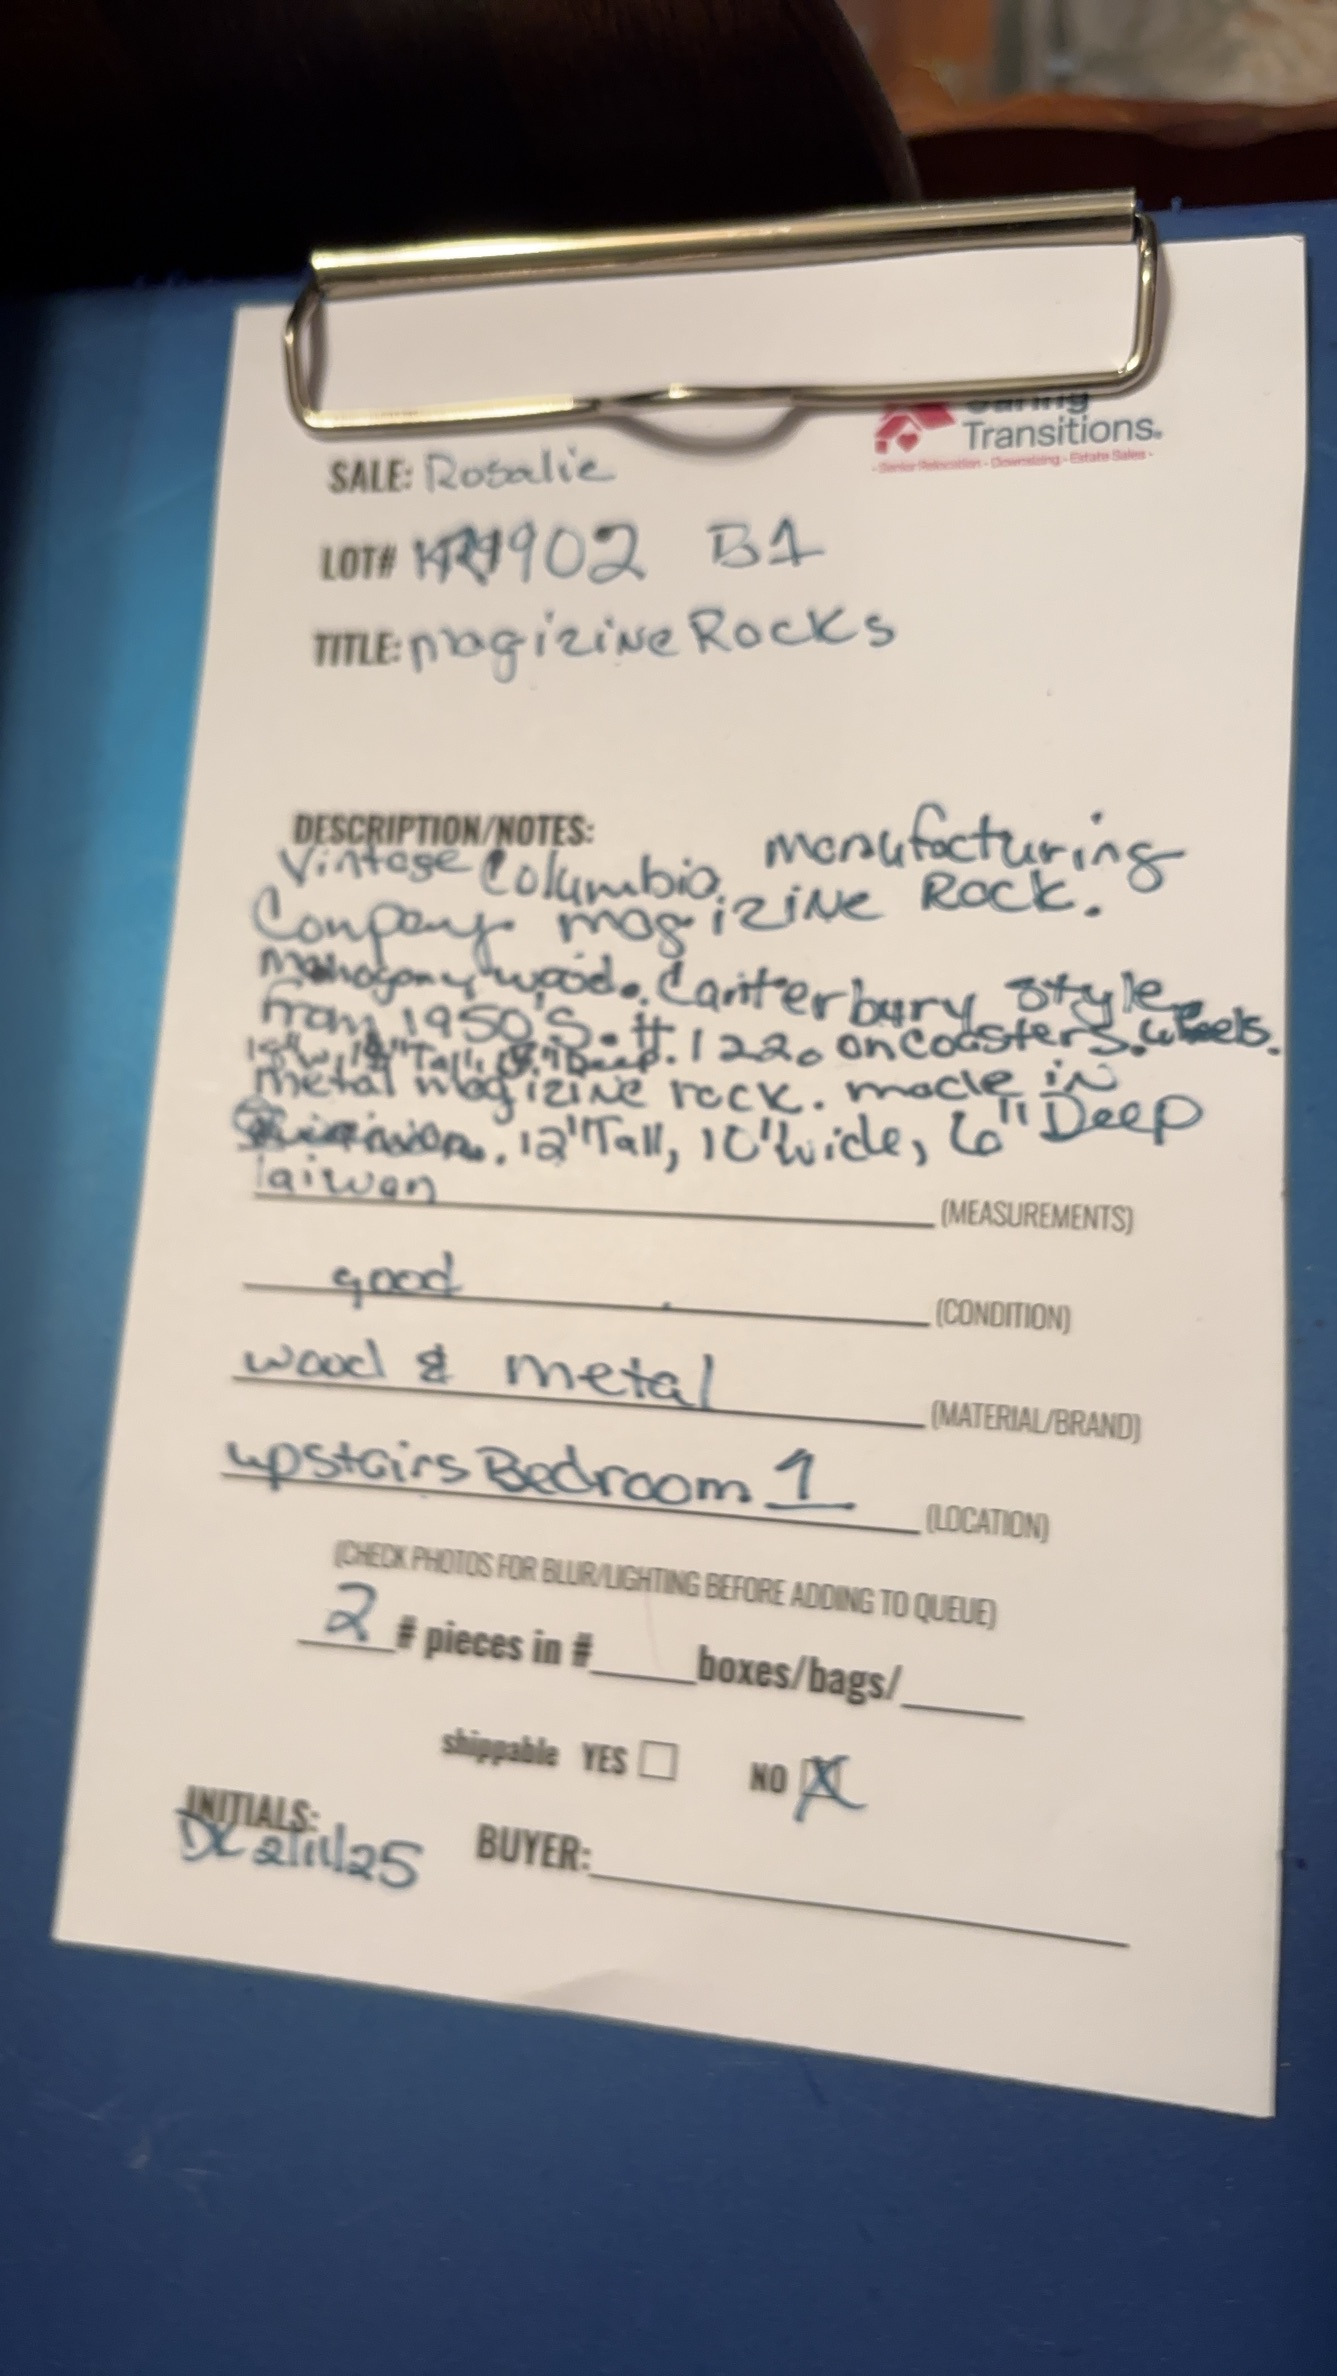 Transitions.
Senior Relocation - Downsizing - Estate Sales
SALE: Rosalie
LOT# 902 B1
TITLE: magizine Racks
DESCRIPTION/NOTES:
Vintage Columbia manufacturing
Company magizine Rack.
Mahogany wood. Canterbury style
from 1950's. # 1220 on coasters. wheels.
Tall, Deep.
metal magizine rack. made in
12" Tall, 10" wide, 6" Deep
Taiwan (MEASUREMENTS)
good (CONDITION)
wood & metal (MATERIAL/BRAND)
upstairs Bedroom 1 (LOCATION)
(CHECK PHOTOS FOR BLUR/LIGHTING BEFORE ADDING TO QUEUE)
2 # pieces in # boxes/bags/
shippable YES NO X
INITIALS:
DL 2/11/25 BUYER: